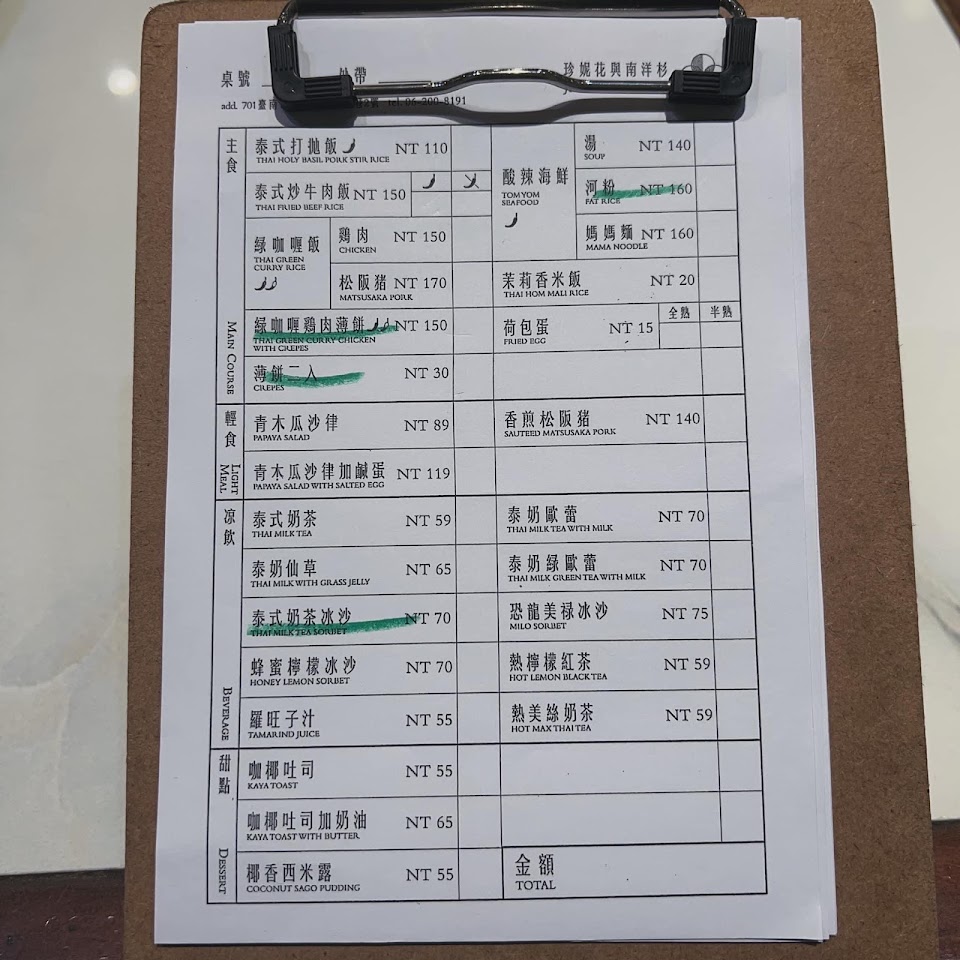 桌號
外帶
珍妮花與南洋杉
add. 701臺南
2號 tel. 06-200-8191
主食
MAIN COURSE
泰式打拋飯 NT 110
THAI HOLY BASIL PORK STIR RICE
泰式炒牛肉飯 NT 150
THAI FRIED BEEF RICE
绿咖喱飯
THAI GREEN
CURRY RICE
鷄肉 NT 150
CHICKEN
松阪猪 NT 170
MATSUSAKA PORK
绿咖喱鷄肉薄餅 NT 150
THAI GREEN CURRY CHICKEN
WITH CREPES
薄餅二入 NT 30
CREPES
酸辣海鮮
TOMYOM
SEAFOOD
湯 NT 140
SOUP
河粉 NT 160
FAT RICE
媽媽麵 NT 160
MAMA NOODLE
茉莉香米飯 NT 20
THAI HOM MALI RICE
荷包蛋 NT 15
FRIED EGG
全熟 半熟
輕食
LIGHT
MEAL
青木瓜沙律 NT 89
PAPAYA SALAD
青木瓜沙律加鹹蛋 NT 119
PAPAYA SALAD WITH SALTED EGG
香煎松阪豬 NT 140
SAUTEED MATSUSAKA PORK
凉飲
BEVERAGE
泰式奶茶 NT 59
THAI MILK TEA
泰奶仙草 NT 65
THAI MILK WITH GRASS JELLY
泰式奶茶冰沙 NT 70
THAI MILK TEA SORBET
蜂蜜檸檬冰沙 NT 70
HONEY LEMON SORBET
羅旺子汁 NT 55
TAMARIND JUICE
泰奶歐蕾 NT 70
THAI MILK TEA WITH MILK
泰奶綠歐蕾 NT 70
THAI MILK GREEN TEA WITH MILK
恐龍美禄冰沙 NT 75
MILO SORBET
熱檸檬紅茶 NT 59
HOT LEMON BLACK TEA
熱美絲奶茶 NT 59
HOT MAX THAI TEA
甜點
DESSERT
咖椰吐司 NT 55
KAYA TOAST
咖椰吐司加奶油 NT 65
KAYA TOAST WITH BUTTER
椰香西米露 NT 55
COCONUT SAGO PUDDING
金額
TOTAL